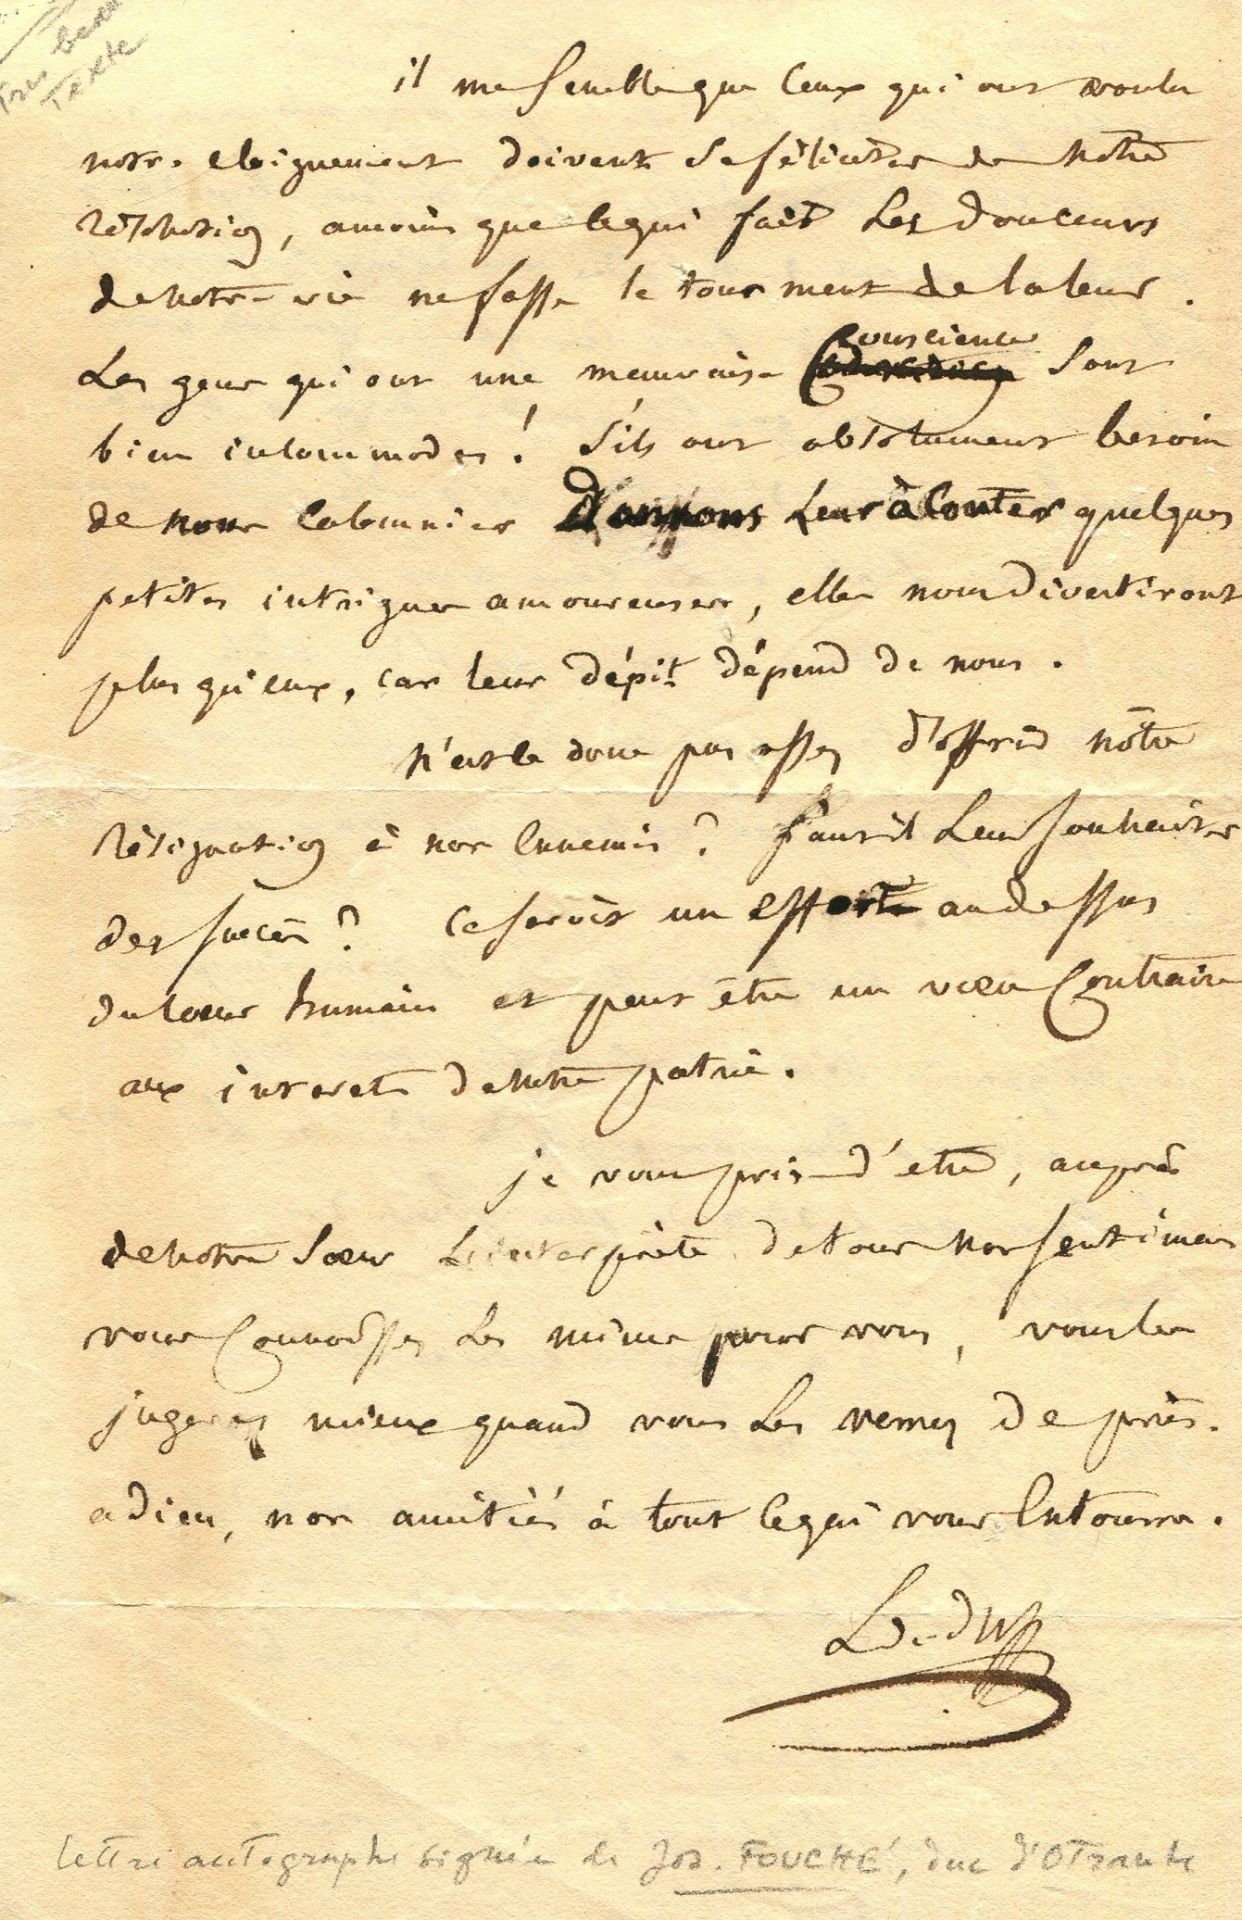 Très beau
Texte
il me semble que ceux qui ont voulu
notre eloignement doivent se féliciter de nôtre
résolution, amoins que ce qui fait les douceurs
de notre vie ne fasse le tourment de la leur.
conscience
Les gens qui ont une mauvaise sont
bien incommodes! s'ils ont absolument besoin
de nous calomnier donnons leur à conter quelques
petites intrigues amoureuses, elles nous divertiront
plus qu'eux, car leur dépit dépend de nous.
N'est ce donc pas assez d'offrir nôtre
résignation à nos Ennemis? faut il leur souhaiter
des succès? ce seroit un effort au dessus
du coeur humain et peut être un voeu contraire
aux interets de notre patrie.
je vous prie d'etre, auprès
de votre soeur L'interprète de tous nos sentimens
vous connoissez les même pour vous, vous les
jugerez mieux quand vous les verrez de près.
adieu, nos amitiés à tout ce qui vous Entoure.
Le d
lettre autographe signée de Jos. FOUCHÉ, duc d'Otrante